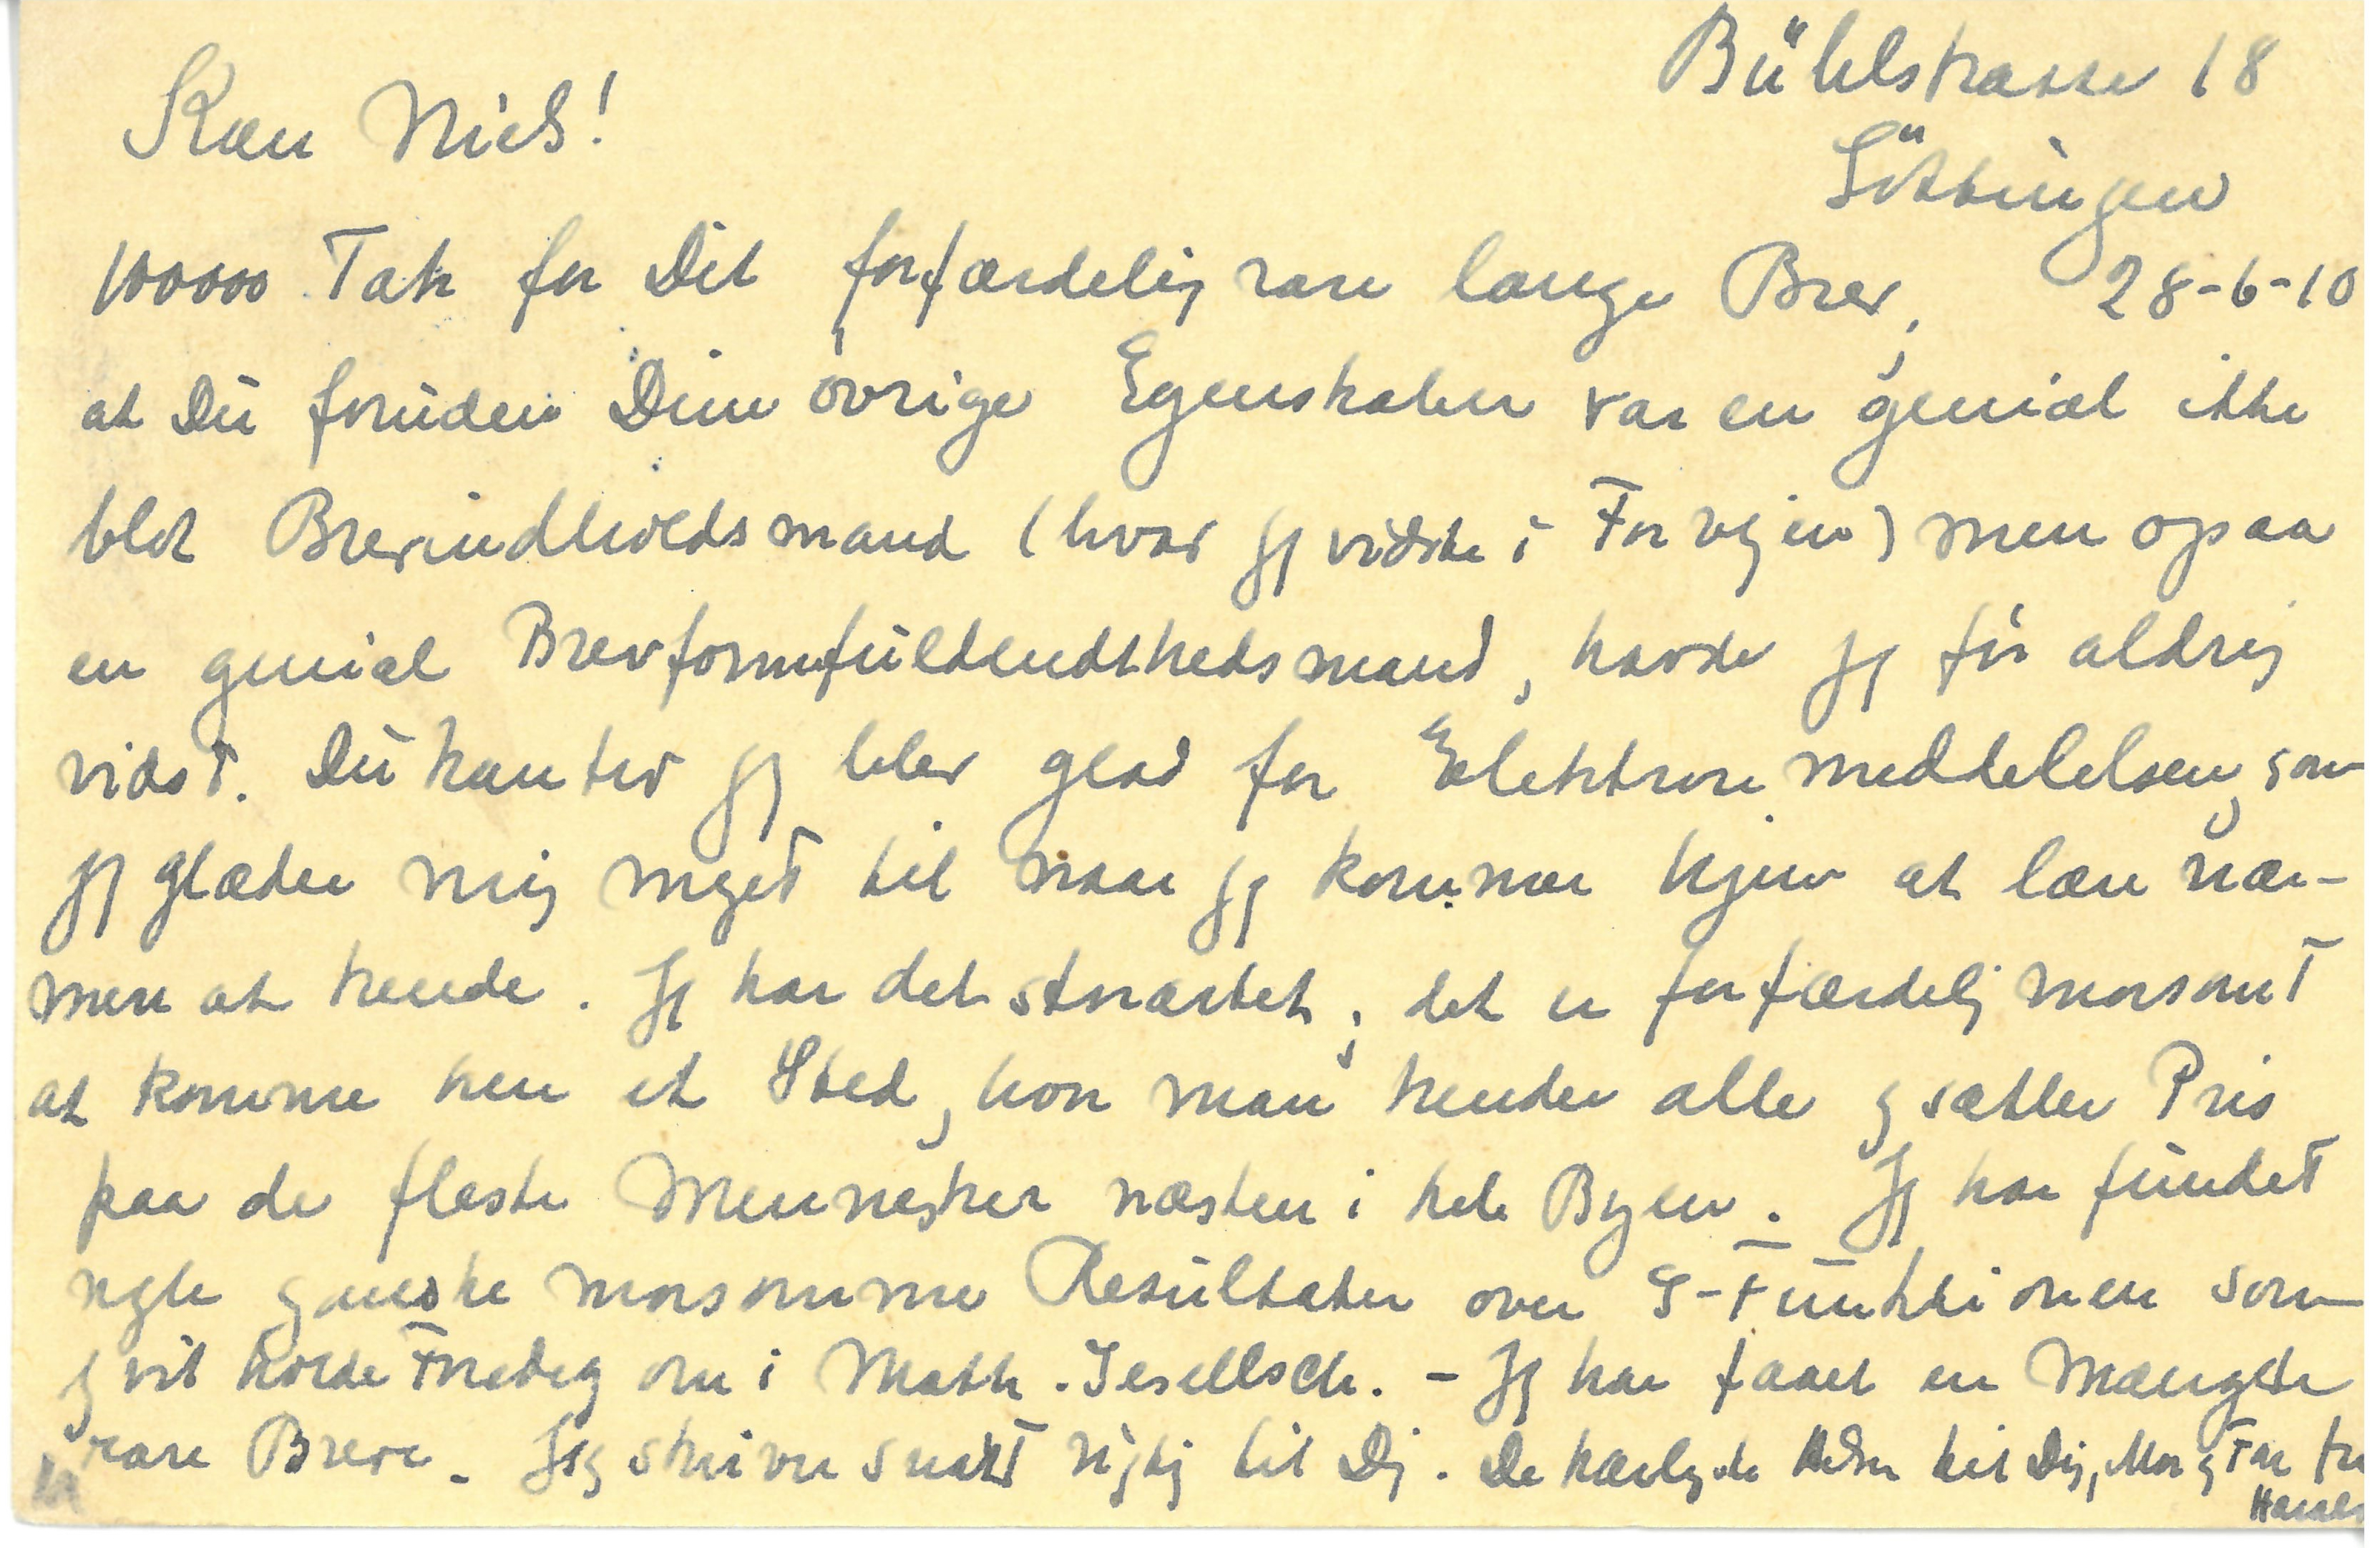 Bühlstrasse 18
Kære Niels!
Göttingen
100000 Tak for Dit forfærdelig rare lange Brev, 28-6-10
at Du foruden Dine øvrige Egenskaber var en genial ikke
blot Brevindholdsmand (hvad jeg vidste i Forvejen) men ogsaa
en genial Brevformfuldendthedsmand, havde jeg før aldrig
vidst. Du kan tro jeg blev glad for Elektronmeddelelsen, som
jeg glæder mig meget til naar jeg kommer hjem at lære nær-
mere at kende. Jeg har det storartet, det er forfærdelig morsomt
at komme hen et Sted, hvor man kender alle og sætter Pris
paa de fleste Mennesker næsten i hele Byen. Jeg har fundet
nogle ganske morsomme Resultater over ζ-Funktionen som
jeg vil holde Foredrag om i Math. Gesellsch. - Jeg har faaet en Mængde
rare Breve. Jeg skriver snart rigtig til Dig. De kærligste Hilsner til Dig, Mor og Far fra
Harald